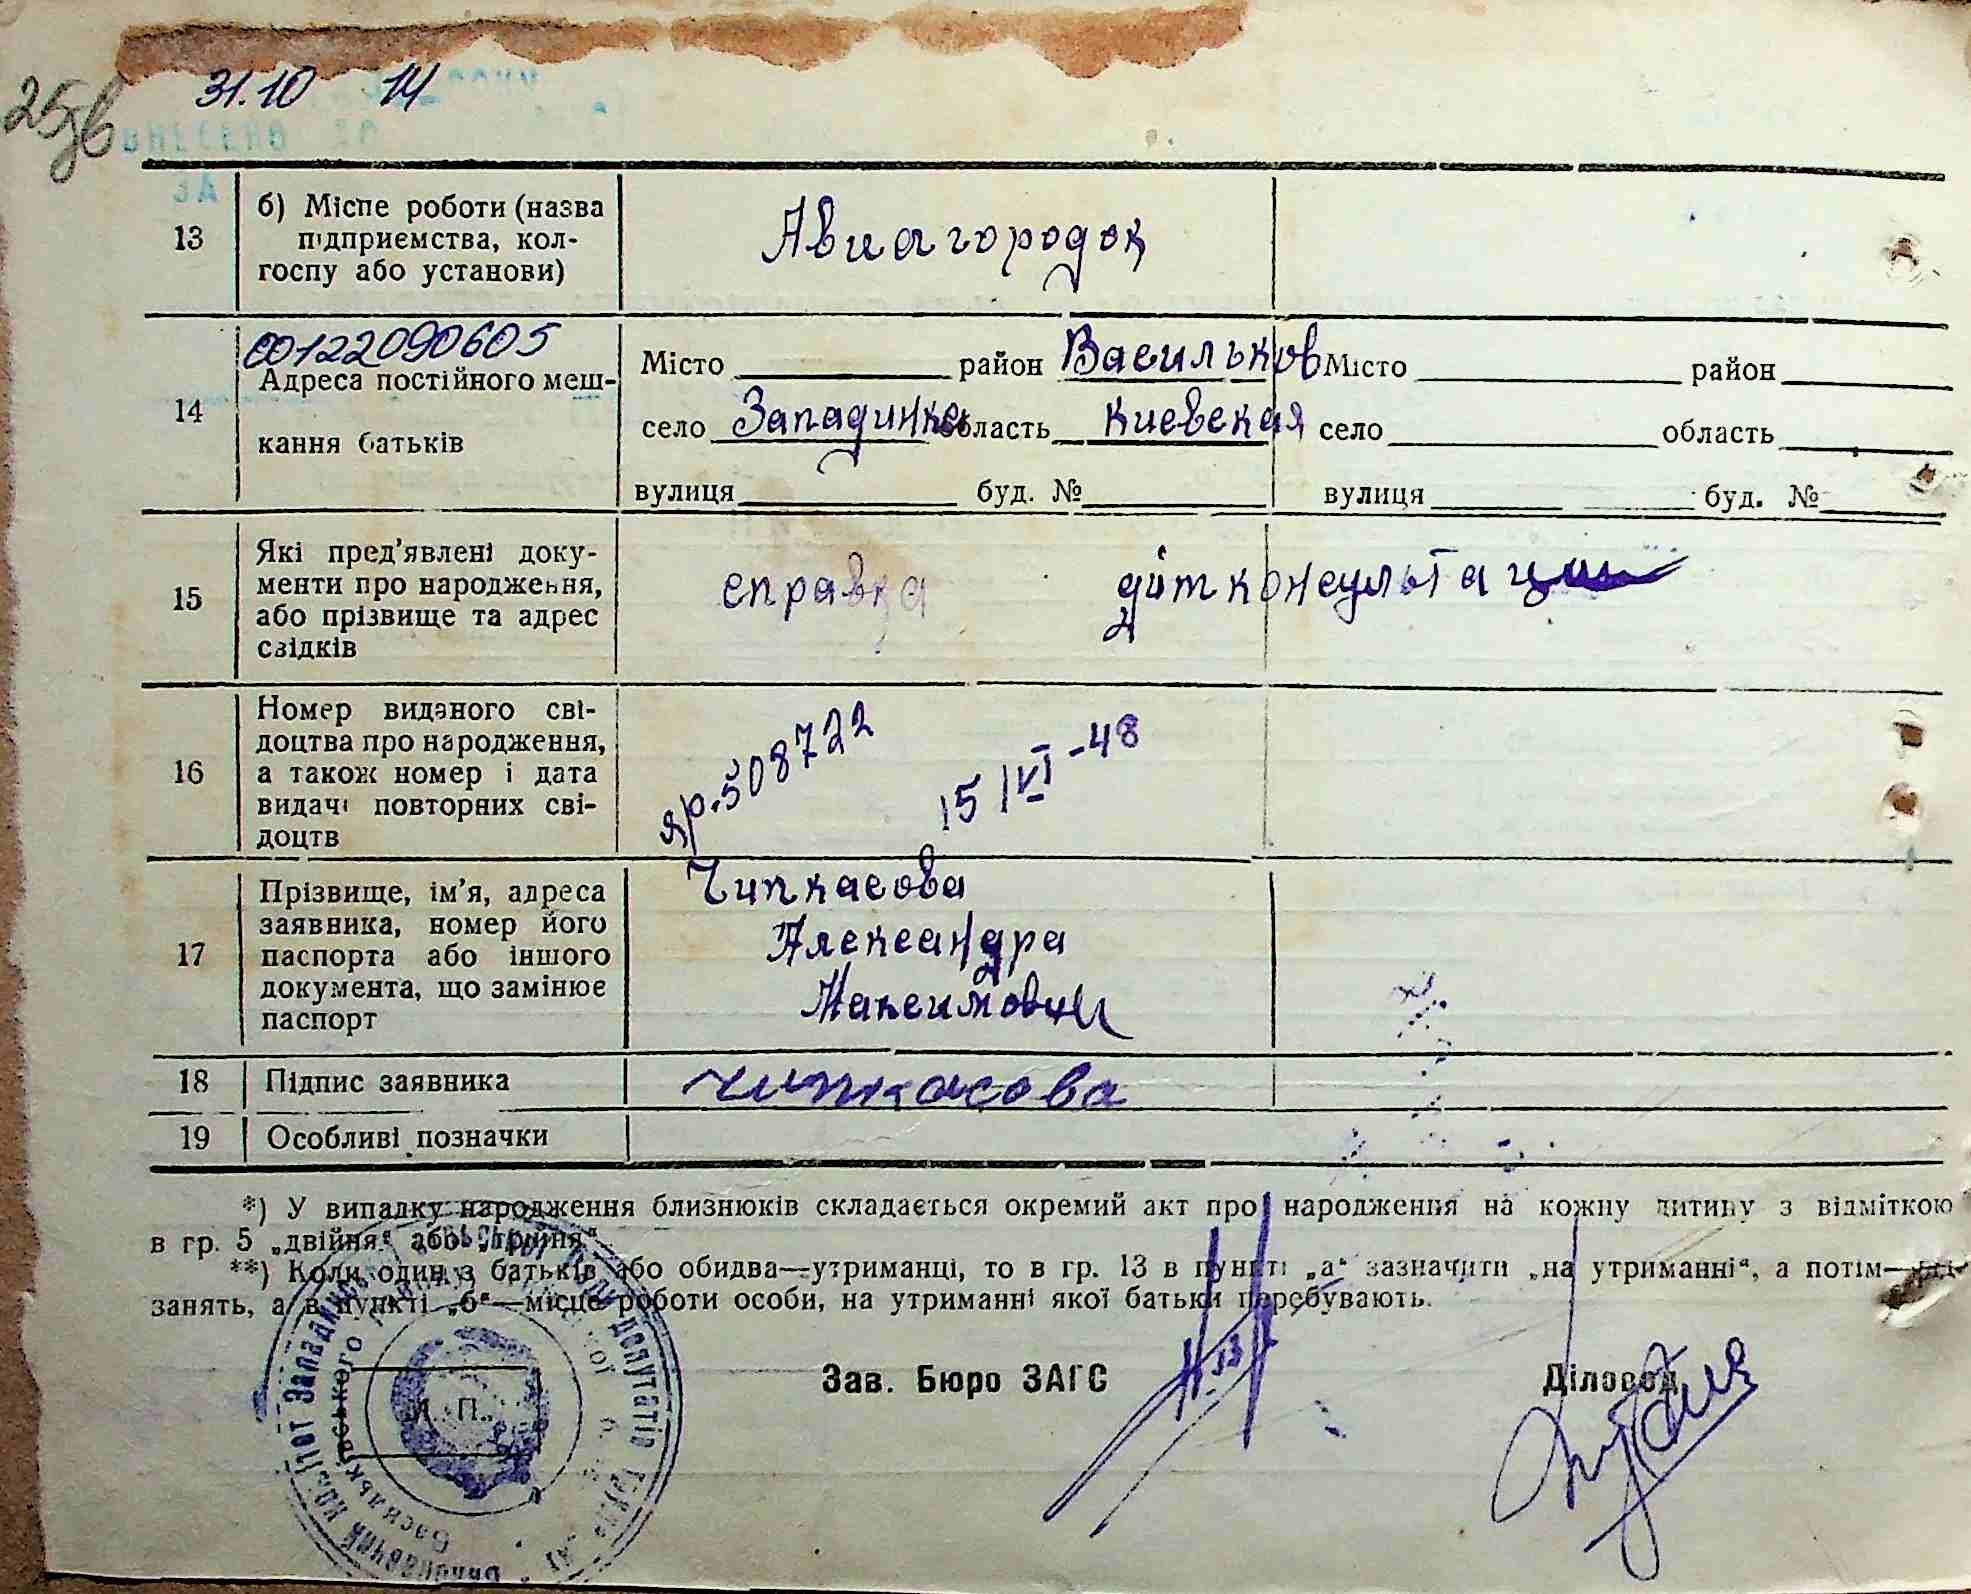 31.10 14
25зв
13
б) Місце роботи (назва
підприємства, кол-
госпу або установи)
Авиагородок
00122090605
14
Адреса постійного меш-
кання батьків
Місто район Васильков
село Западинка область Киевская
вулиця буд. №
Місто район
село область
вулиця буд. №
15
Які пред'явлені доку-
менти про народження,
або прізвище та адрес
свідків
справка дит консультации
16
Номер виданого сві-
доцтва про народження,
а також номер і дата
видачі повторних сві-
доцтв
яр.508722 15/VI-48
17
Прізвище, ім'я, адреса
заявника, номер його
паспорта або іншого
документа, що замінює
паспорт
Чипкасова
Александра
18
Підпис заявника
Чипкасова
19
Особливі позначки
*) У випадку народження близнюків складається окремий акт про народження на кожну дитину з відміткою
в гр. 5 „двійня“ або „трійня“.
**) Коли один з батьків або обидва—утриманці, то в гр. 13 в пункті „а“ зазначити „на утриманні“, а потім—
занять, а в пункті „б“—місце роботи особи, на утриманні якої батьки перебувають.
М. П.
Зав. Бюро ЗАГС
Діловод